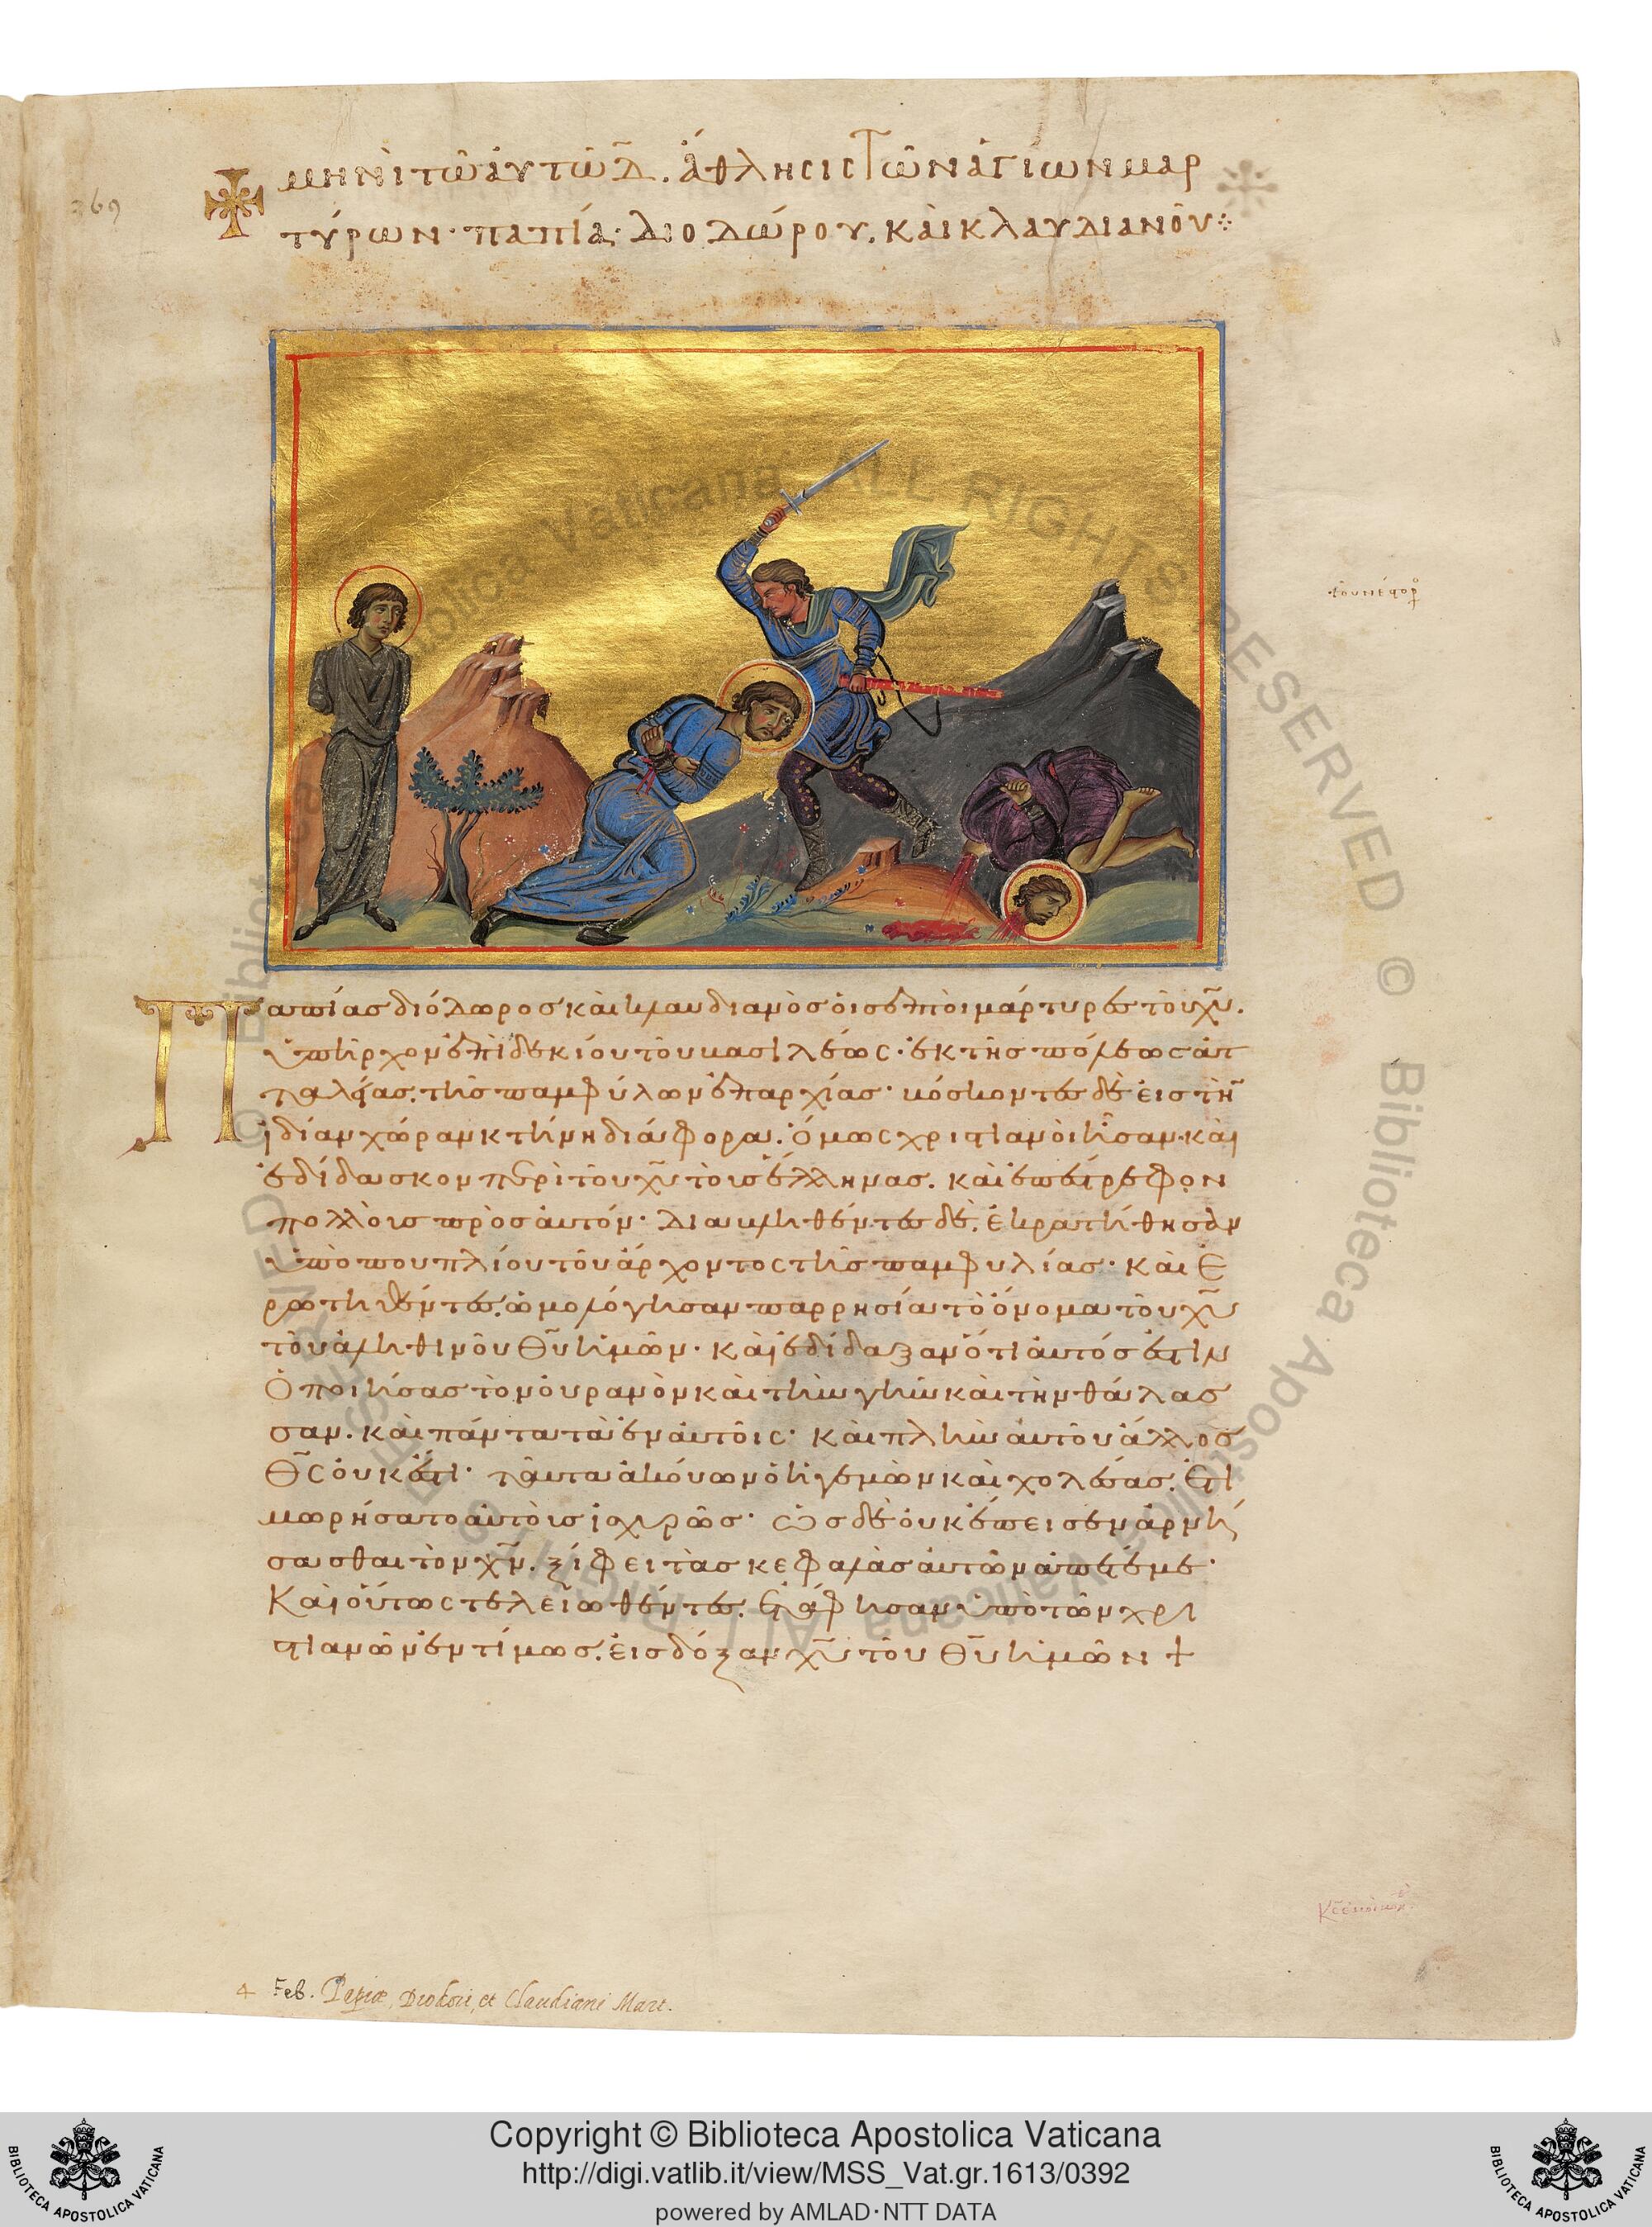 369
μηνὶ τῶ αὐτῶ Δ. ἄθλησις τῶν ἁγίων μαρ
τύρων· παπία· διοδώρου, καὶ κλαυδιανοῦ
Παπίας διόδωρος καὶ κλαυδιανὸς οἱ σεπτοὶ μάρτυρες τοῦ χυ.
ὑπῆρχον ἐπὶ δεκίου τοῦ βασιλέως· ἐκ τῆς πόλεως ἀτ
ταλείας, τῆς παμφύλων ἐπαρχίας· βόσκοντες δὲ εἰς τὴν
ἰδίαν χώραν κτήνη διάφορα. ὅμως χριστιανοὶ ἦσαν. καὶ
ἐδίδασκον περὶ τοῦ χυ τοῖς ἕλληνας. καὶ ἐπέστρεφον
πολλοὺς πρὸς αὐτόν· διαβληθέντες δὲ, ἐκρατήθησαν
ὑπὸ πουπλίου τοῦ ἄρχοντος τῆς παμφυλίας· καὶ ἐ
ρωτηθέντες, ὡμολόγησαν παρρησία τὸ ὄνομα τοῦ χυ
τοῦ ἀληθινοῦ θυ ἡμῶν· καὶ ἐδίδαξαν ὅτι αὐτός ἐστιν
ὁ ποιήσας τὸν οὐρανὸν καὶ τὴν γῆν καὶ τὴν θάλασ
σαν. καὶ πάντα τὰ ἐν αὐτοῖς· καὶ πλὴν αὐτοῦ ἄλλος
θς οὐκ ἔστι· ταῦτα ἀκούων ὁ ἡγεμὼν καὶ χολέσας. ἐτι
μωρήσατο αὐτοῖς ἰσχυρῶς· ὡς δὲ οὐκ ἔπεισεν ἀρνή
σασθαι τὸν χν. ξίφει τὰς κεφαλὰς αὐτῶν ἀπέτεμε·
Καὶ οὕτως τελειωθέντες. ἐτάφησαν ὑπὸ τῶν χρι
στιανῶν ἐντίμως. εἰς δόξαν χυ τοῦ θυ ἡμῶν +
4 Feb. Papiæ, Diodori, et Claudiani Mart.
BIBLIOTECA APOSTOLICA VATICANA
Copyright © Biblioteca Apostolica Vaticana
http://digi.vatlib.it/view/MSS_Vat.gr.1613/0392
powered by AMLAD·NTT DATA
BIBLIOTECA APOSTOLICA VATICANA
© Biblioteca Apostolica Vaticana ALL RIGHTS RESERVED © Biblioteca Apostolica Vaticana ALL RIGHTS RESERVED